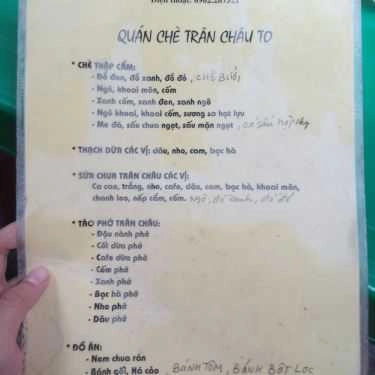 Điện thoại:
QUÁN CHÈ TRÂN CHÂU TO
* CHÈ THẬP CẨM:
- Đỗ đen, đỗ xanh, đỗ đỏ, CHÈ BƯỞI,
- Ngô, khoai môn, cốm
- Xanh cốm, xanh đen, xanh ngô
- Ngô khoai, khoai cốm, sương sa hạt lựu
- Me đá, sấu chua ngọt, sấu mặn ngọt,
* THẠCH DỪA CÁC VỊ: dâu, nho, cam, bạc hà
* SỮA CHUA TRÂN CHÂU CÁC VỊ:
Ca cao, trắng, nho, cafe, dâu, cam, bạc hà, khoai môn,
chanh leo, nếp cẩm, cốm. Ngô, đỗ xanh, đỗ đỏ
* TÀO PHỚ TRÂN CHÂU:
- Đậu nành phớ
- Cốt dừa phớ
- Cafe dừa phớ
- Cốm phớ
- Xanh phớ
- Bạc hà phớ
- Nho phớ
- Dâu phớ
* ĐỒ ĂN:
- Nem chua rán
- Bánh gối, Há cảo, BÁNH TÔM, BÁNH BỘT LỌC